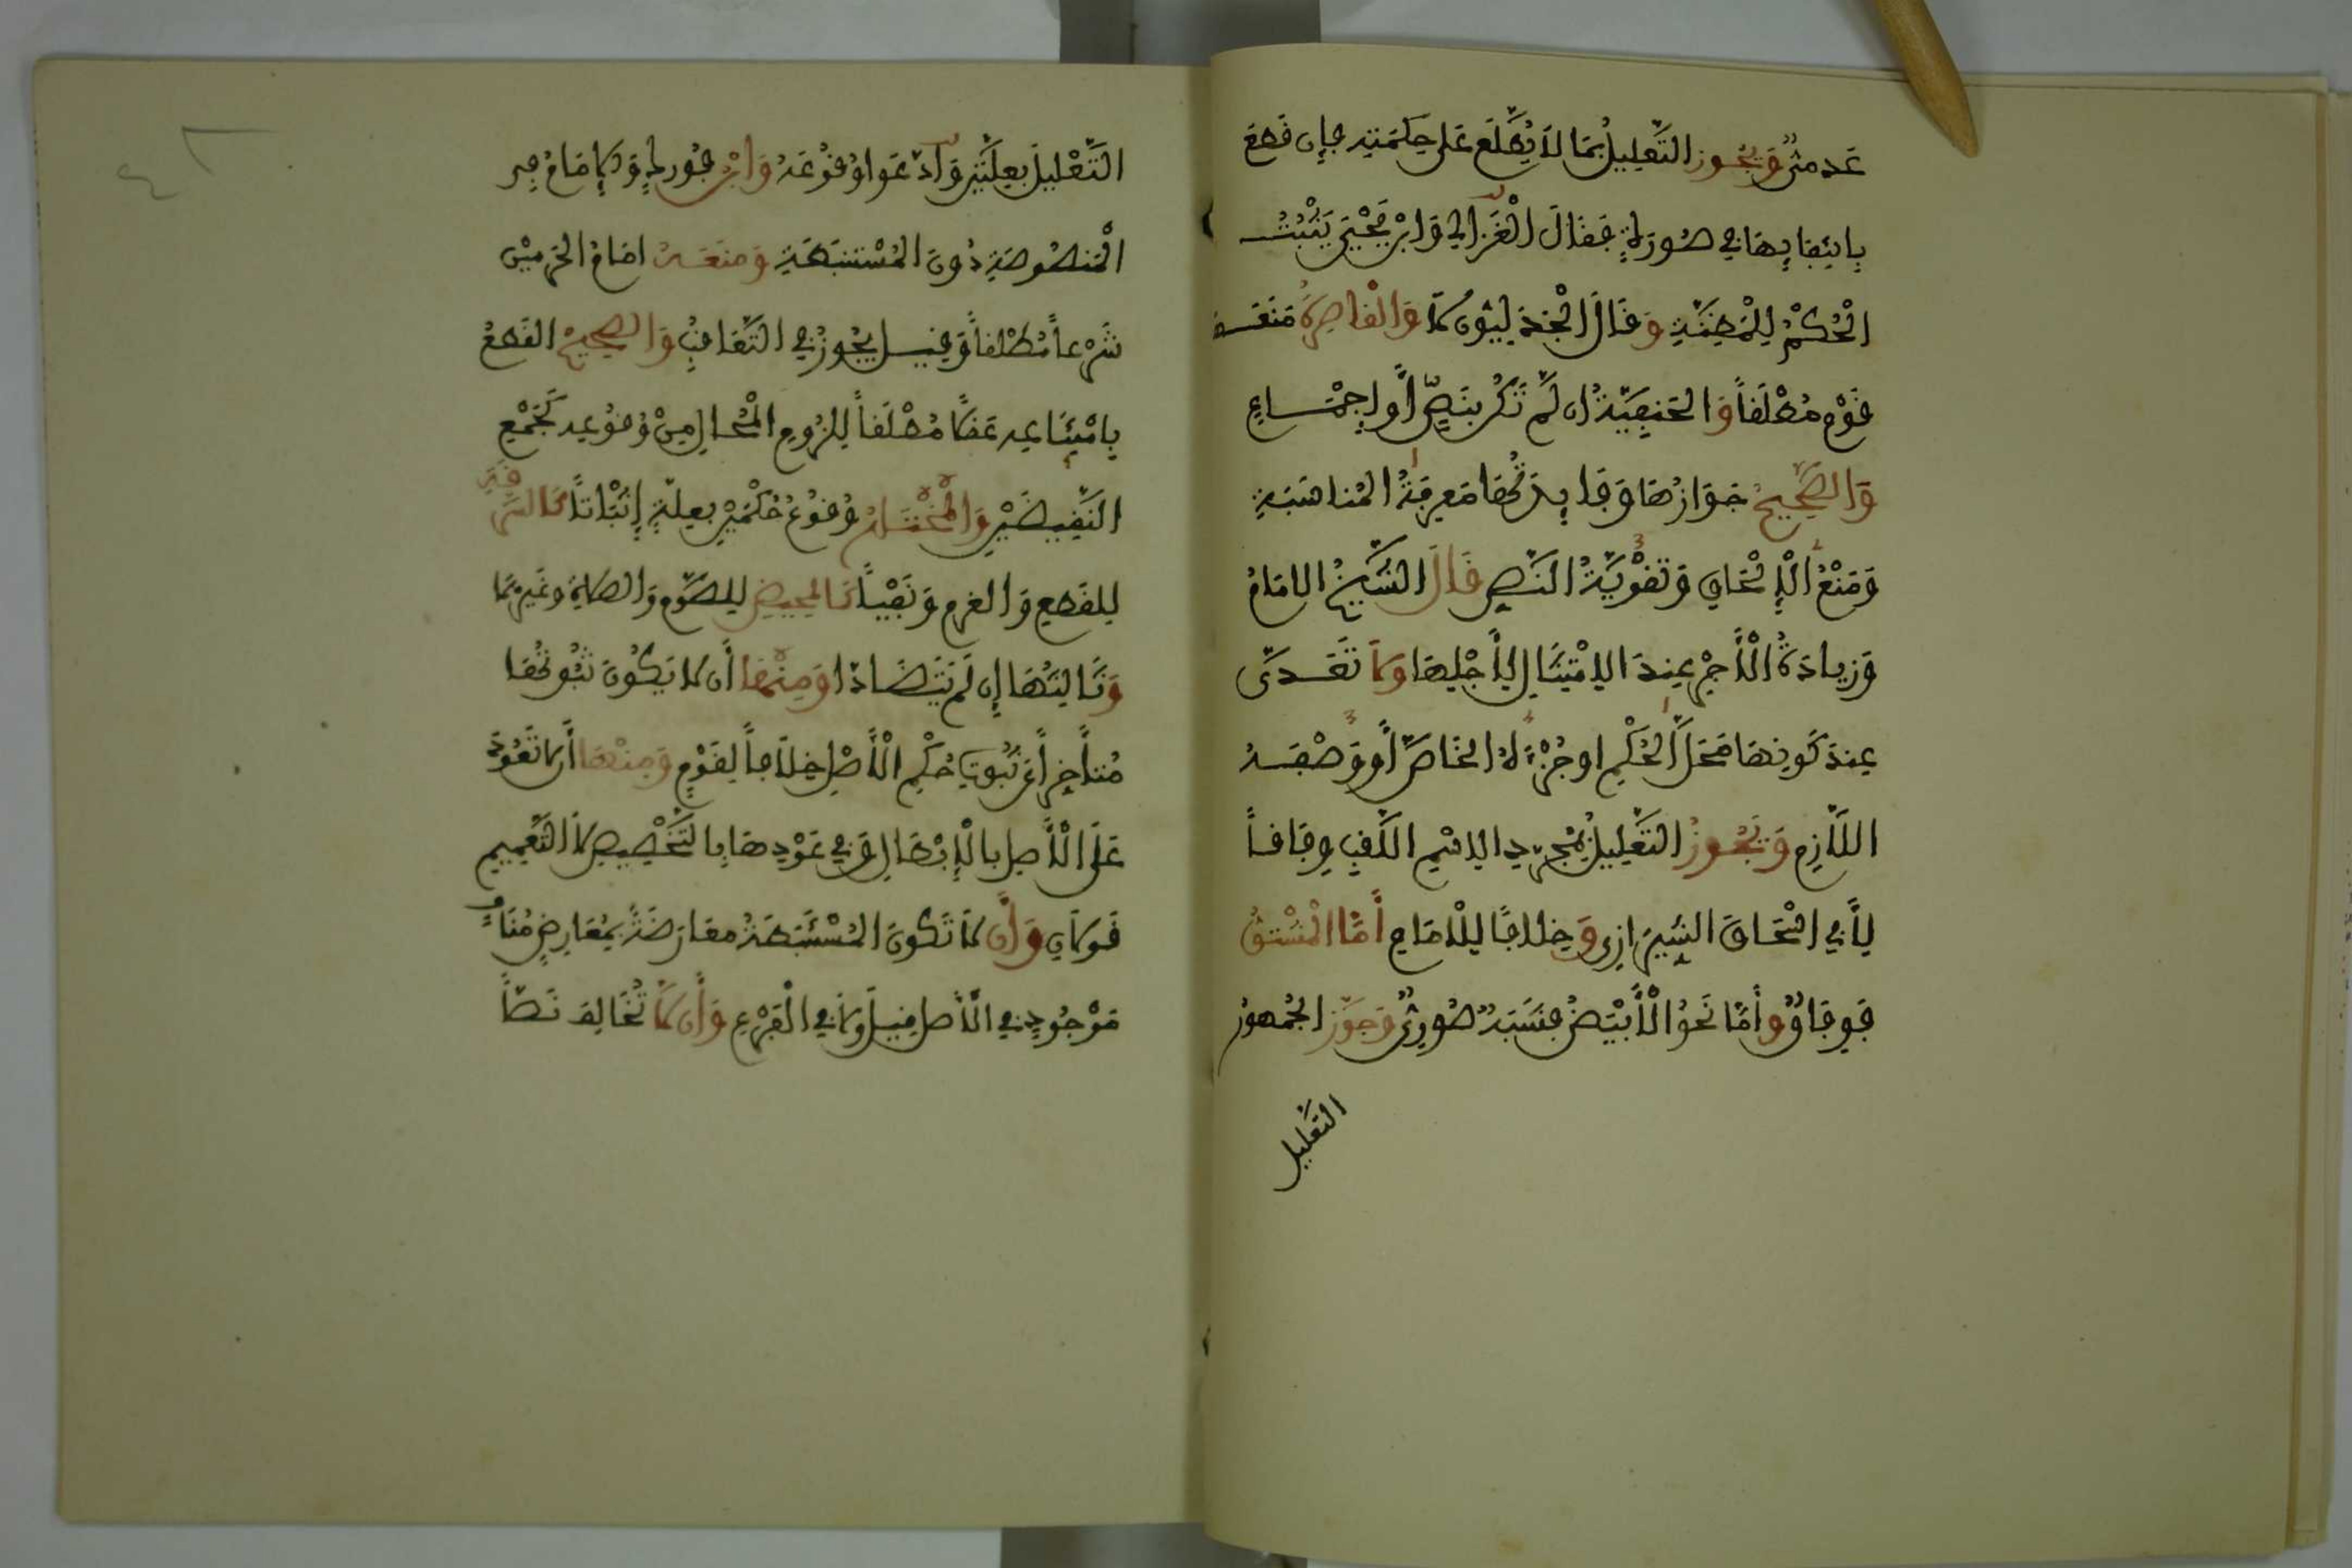 عَدمىٌّ وَيَجُوز التَّعلِيلُ بمَا لاَ يُطَّلَع عَلى حِكمَتِهِ فإن قَطع
بِانتِفَايِهَا فِي صُورَةٍ فَقَالَ الْغَزالي وَابْن يَحْيَى يَثْبُتُ
الْحُكْمُ لِلْمَظِنَّةِ وَقَالَ الْجَدَلِيُّونَ لَا وَالْقَاصِرَةُ مَنَعَهَا
قَوْم مُطْلَقاً وَالحَنَفِيَّةُ ان لَّمْ تَكُن بِنَصٍّ أَو إجمَاعٍ
وَالصَّحِيحُ جَوَازُهَا وَفَايِدَتُهَا مَعرِفَةُ المُنَاسَبَةِ
وَمَنْعُ الْإِلْحَاقِ وَتَقْوِيَةُ النَّصِّ قَالَ الشَّيْخُ الامَامُ
وَزِيادَةُ الْأَجْرِ عِندَ الِامْتِثَالِ لِأَجْلِهَا وَلَا تَعَدِّىَ
عِندَ كَونِهَا مَحَلَّ الْحُكْمِ اوجُزْءَهُ الخَاصَّ أَو وَصْفَهُ
اللَّازِمِ وَيَجُوزُ التَّعْلِيلُ بِمُجَرَّدِ الِاسْمِ اللَّقَبِ وِفَاقاً
لِأَبِي اسْحَاقَ الشِّيرَازِي وَخِلَافًا لِلْامَامِ أَمَّا الْمُشْتَقُّ
فَوِفَاقٌ وأمّا نَحوُ الْأَبْيَضُ فَشَبَهٌ صُورِىٌّ وَجَوَّزَ الجُمْهورُ
التَّعْلِيل
التَّعْلِيلَ بِعِلَّتَيْنِ وَادّعَوا وُقُوعَهُ وَابْن فُورَكٍ وَالإِمَامُ فِى
الْمَنصُوصَةِ دُونَ الْمُسْتَنبَطَةِ وَمَنَعَهُ امَامُ الحَرَمَيْن
شَرْعاً مُطْلَقاً وَقِيلَ يَجُوزُ فِي التَّعَاقُبِ وَالصَّحِيحُ القَطعُ
بِامْتِنَاعِهِ عَقلًا مُطْلَقاً لِلُزُومِ الْمُحَالِ مِنْ وُقُوعِهِ كَجَمْعِ
النَّقِيضَيْنِ وَالْمُخْتَارُ وُقُوعُ حُكْمَيْنِ بِعِلَّةٍ إِثْبَاتاً كَالسَّرِقَةِ
لِلقَطعِ وَالغرمِ وَنَفْياً كَالحَيضِ لِلصَّومِ وَالصَلَاةِ وغَيرِهِمَا
وَثَالِثُهَا إِن لَّم يَتَضَادَّا وَمِنْهَا أَن لا يَكُونَ ثُبُوتُهَا
مُتأَخِراً عَن ثُبُوتِ حُكْمِ الْأَصْلِ خِلَافاً لِقَوْمٍ وَمِنْهَا أَن لا تَعُودَ
عَلَى الْأَصلِ بِالْإِبْطَالِ وَفِي عَوْدِهَا بِالتَّخْصِيصِ لَا التَّعْمِيمِ
قَولَانِ وَأَن لَا تَكُونَ المُسْتَنبَطَةُ مُعَارَضَةً بِمُعَارِضٍ مُنَافٍ
مَوْجُودٍ فِي الْأَصل قِيلَ وَلَا فِي الْفَرْعِ وَأَن لَا تُخَالِفَ نَصّاً